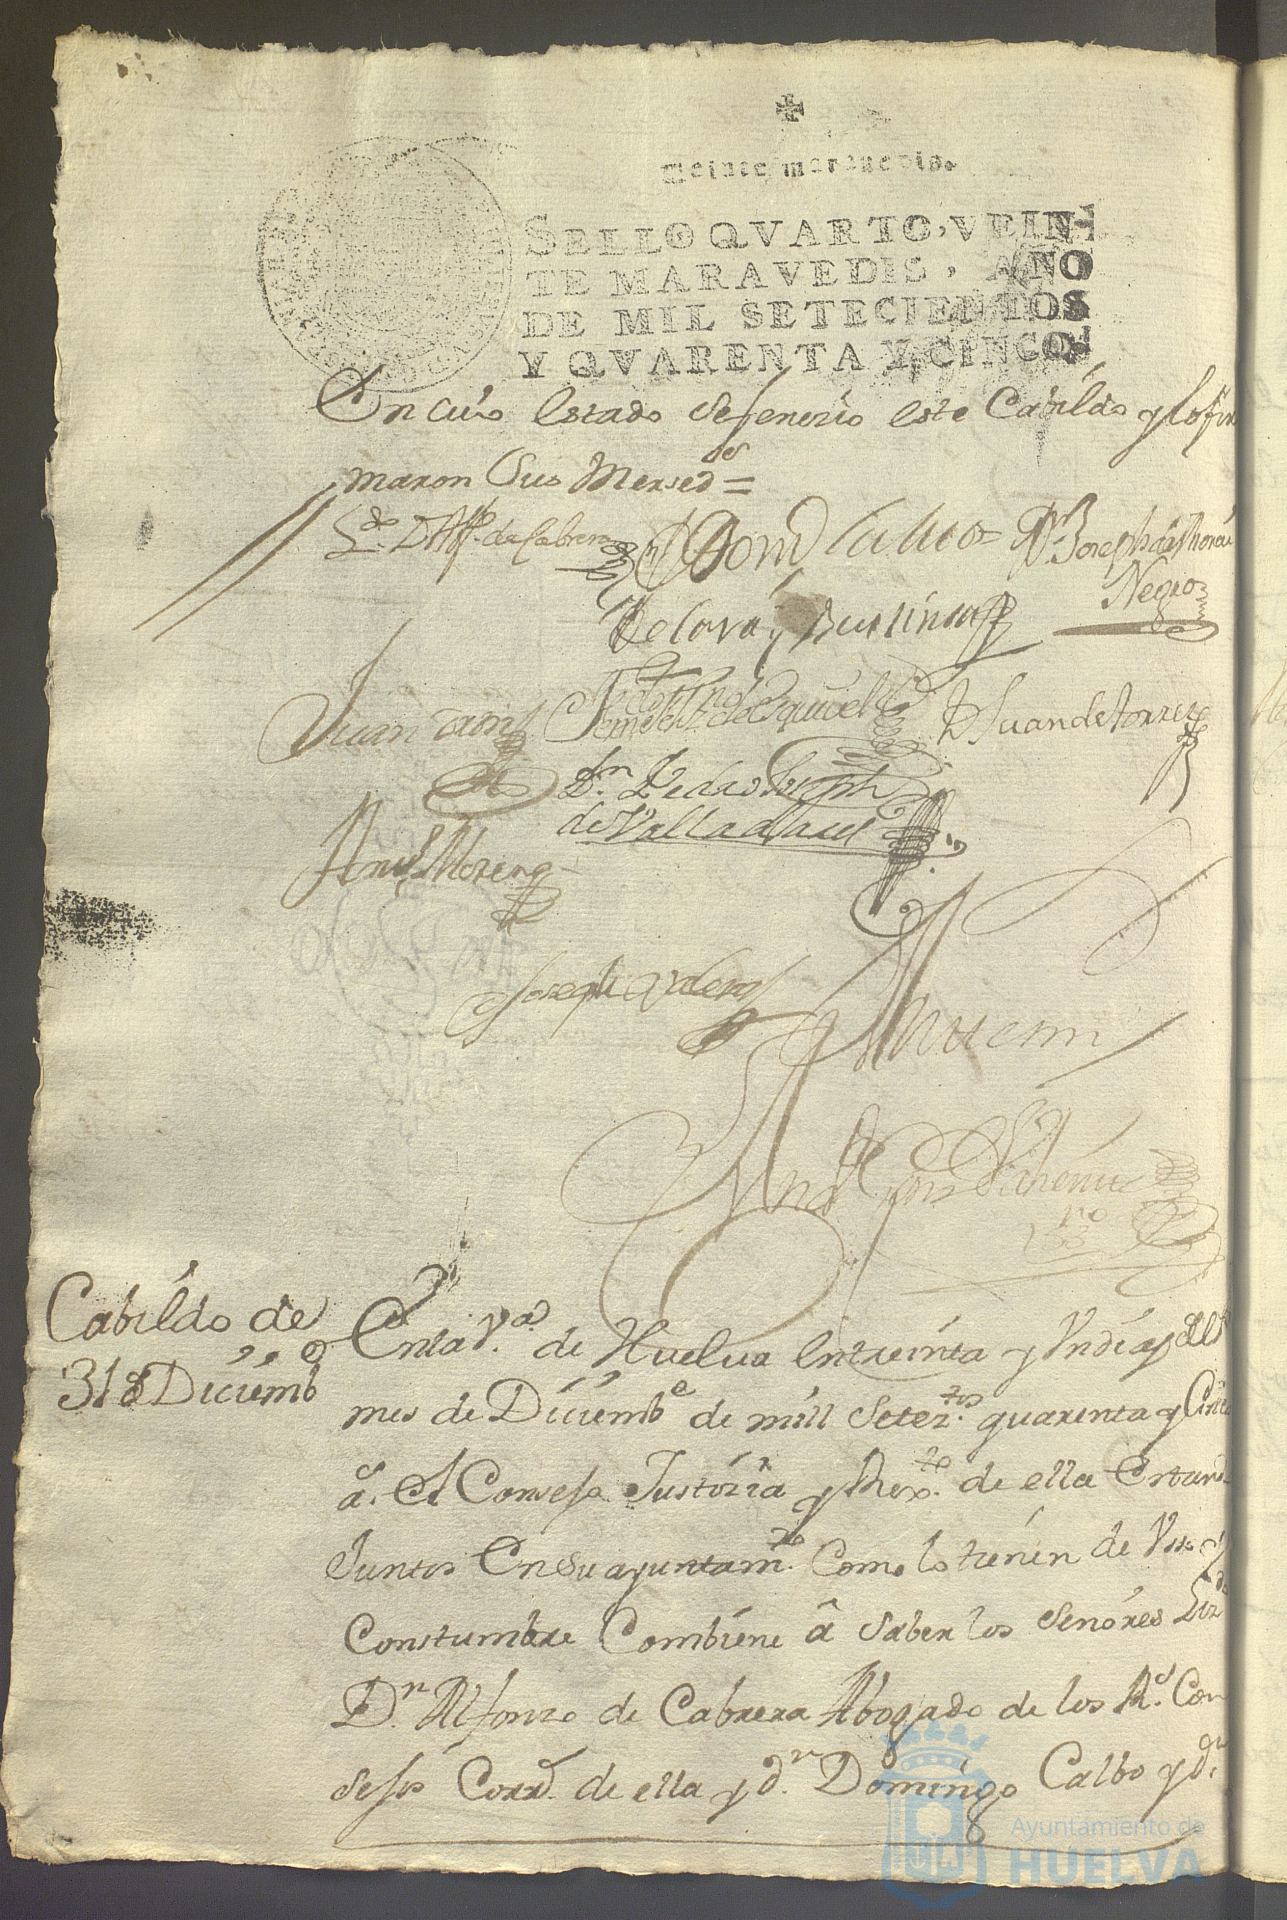 Veinte maravedis.
SELLO QVARTO, VEIN-
TE MARAVEDIS, AÑO
DE MIL SETECIENTOS
Y QVARENTA Y CINCO.
En cuio estado sefenezio este Cabildo y lo fir
maron Sus Mersed.s =
L.do D Alf.o de Cabrera
Dom.o Calbo
D.n Joseph de
Negro
de Lora y
Juan
de Esquivel
D Juan de torres
D.n Pedro Joseph
de Valladares
Ant.o Moreno
Joseph Valero
Ante mi
Cabildo de
31 de Diciemb.e
En la V.a de Huelva en treinta y Un dias del
mes de Diciemb.e de mill Setez.tos quarenta y Cinco
a.s El Consejo Justizia y Rex.to de ella Estand
Juntos En su ayuntam.to Como lo tienen de Uso y
Constumbre Combiene â saber los Señores Liz.do
D.n Alfonso de Cabrera Abogado de los R.s Con
sejos Corr.r de ella y d.n Domingo Calbo y d.n
Ayuntamiento de
HUELVA